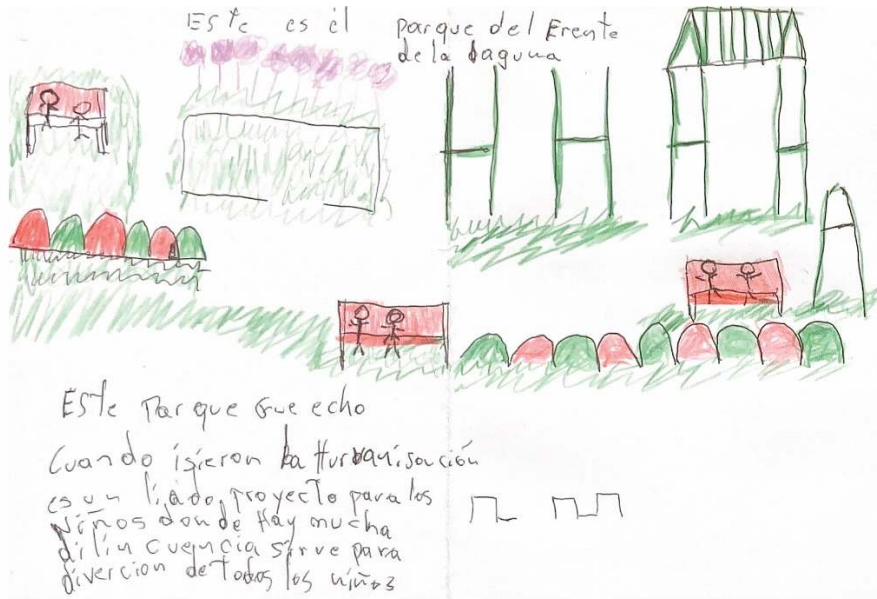 Este es el parque del Erente
de la baguna
Este Parque Gue echo
Cuando isieron ba Hurvanisación
es un lindo proyecto para los
Niños donde Hay mucha
dilin cuencia sirve para
divercion de todos los niños